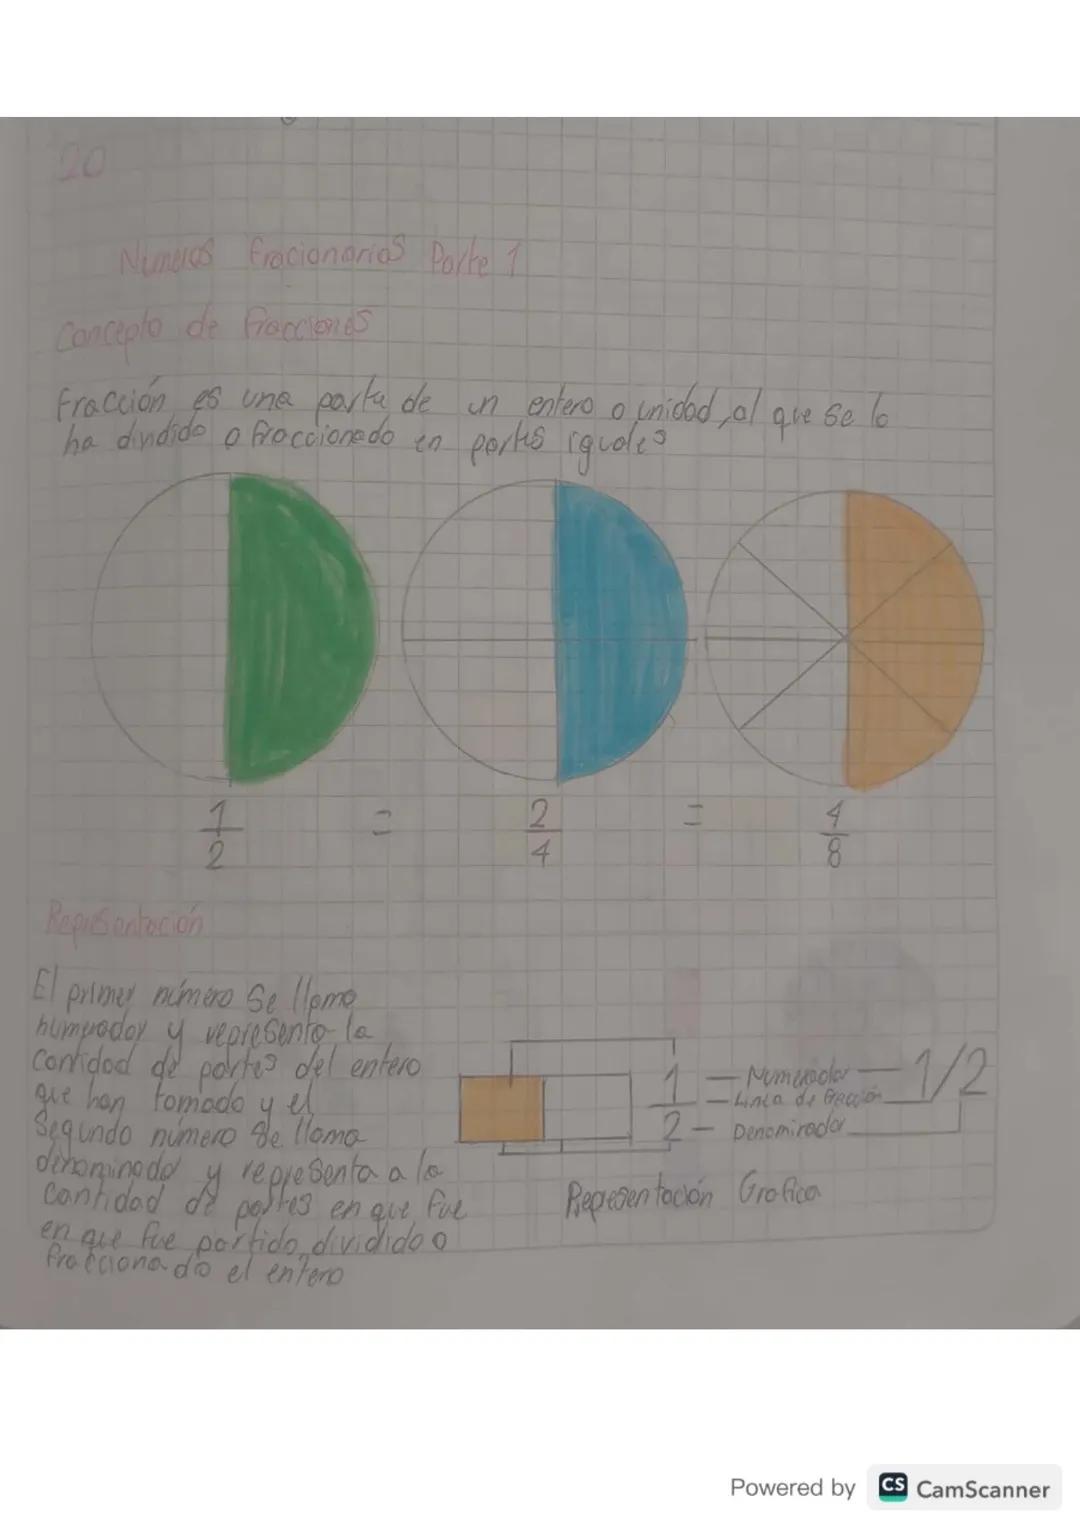 20
Numeros fracionarios Parte 1
Concepto de fracciones
Fracción es una parte de un entero o unidad, al que se lo
ha dividido o fraccionado en partes iguales
1/2 = 2/4 = 4/8
Representación
El primer número se llama
numerador y representa la
cantidad de partes del entero
que han tomado y el
Segundo número se llama
denominador y representa a la
cantidad de partes en que fue
en que fue partido, dividido o
fraccionado el entero
1/2
Numerador
Linea de fracción
Denominador
1/2
Representación Grafica
Powered by CS CamScanner